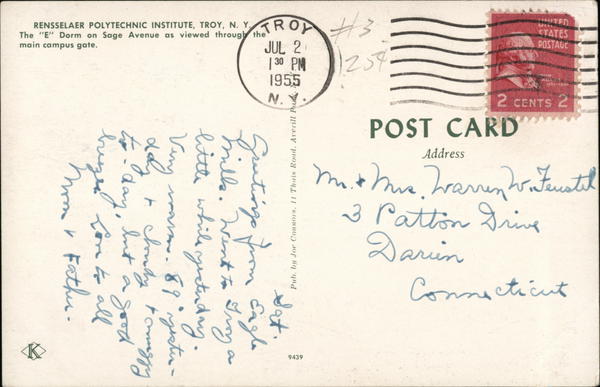 RENSSELAER POLYTECHNIC INSTITUTE, TROY, N. Y.
The "E" Dorm on Sage Avenue as viewed through the
main campus gate.
TROY
JUL 2
1 30 PM
1955
N.Y.
#3
25¢
UNITED
STATES
POSTAGE
2 CENTS 2
POST CARD
Address
Mr. & Mrs. Warren W. Feustel
3 Patton Drive
Darien
Connecticut
Sat.
Greetings from Eagle
Mills. Went to Troy a
little while yesterday.
Very warm. 89° yester-
day & cloudy & muggy
to-day, but a good
breeze. Love to all
Mom & Father.
Pub. by Joe Connors, 11 Thais Road, Averill Park,
K
9439